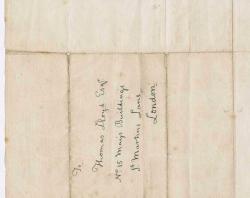 To
Thomas Lloyd Esqr
No 15 Mays Buildings
St Martins Lane
London